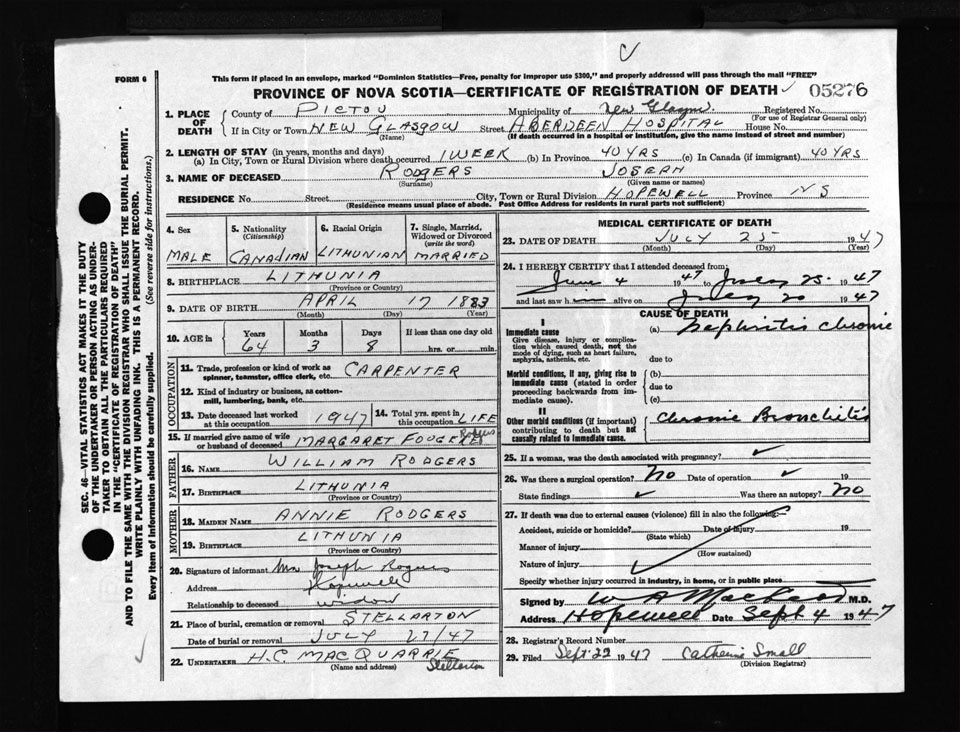 FORM 6
This form if placed in an envelope, marked "Dominion Statistics—Free, penalty for improper use $300," and properly addressed will pass through the mail "FREE"
PROVINCE OF NOVA SCOTIA—CERTIFICATE OF REGISTRATION OF DEATH 05276
1. PLACE OF DEATH
County of PICTOU Municipality of New Glasgow Registered No.
(For use of Registrar General only)
If in City or Town NEW GLASGOW Street ABERDEEN HOSPITAL House No.
(Name) (If death occurred in a hospital or institution, give the name instead of street and number)
2. LENGTH OF STAY (in years, months and days)
(a) In City, Town or Rural Division where death occurred 1 WEEK (b) In Province 40 YRS (c) In Canada (if immigrant) 40 YRS
3. NAME OF DECEASED RODGERS JOSEPH
(Surname) (Given name or names)
RESIDENCE No. Street City, Town or Rural Division HOPEWELL Province NS
(Residence means usual place of abode. Post Office Address for residents in rural parts not sufficient)
4. Sex MALE
5. Nationality (Citizenship) CANADIAN
6. Racial Origin LITHUNIAN
7. Single, Married, Widowed or Divorced (write the word) MARRIED
8. BIRTHPLACE LITHUNIA
(Province or Country)
9. DATE OF BIRTH APRIL 17 1883
(Month) (Day) (Year)
10. AGE in Years 64 Months 3 Days 8 If less than one day old hrs. or min.
OCCUPATION
11. Trade, profession or kind of work as spinner, teamster, office clerk, etc. CARPENTER
12. Kind of industry or business, as cotton-mill, lumbering, bank, etc.
13. Date deceased last worked at this occupation 1947
14. Total yrs. spent in this occupation LIFE
15. If married give name of wife or husband of deceased MARGARET FOUGERE
FATHER
16. NAME WILLIAM RODGERS
17. BIRTHPLACE LITHUNIA
(Province or Country)
MOTHER
18. MAIDEN NAME ANNIE RODGERS
19. BIRTHPLACE LITHUNIA
(Province or Country)
20. Signature of informant Mrs Joseph Rogers
Address Hopewell
Relationship to deceased widow
21. Place of burial, cremation or removal STELLARTON
Date of burial or removal JULY 27/47
22. UNDERTAKER H.C. MACQUARRIE Stellarton
(Name and address)
MEDICAL CERTIFICATE OF DEATH
23. DATE OF DEATH JULY 25 1947
(Month) (Day) (Year)
24. I HEREBY CERTIFY that I attended deceased from
June 4 1947 to July 25 1947
and last saw him alive on July 20 1947
CAUSE OF DEATH
I
Immediate cause
Give disease, injury or complication which caused death, not the mode of dying, such as heart failure, asphyxia, asthenia, etc.
(a) Nephritis chronic
due to
Morbid conditions, if any, giving rise to immediate cause (stated in order proceeding backwards from immediate cause).
(b)
due to
(c)
II
Other morbid conditions (if important) contributing to death but not causally related to immediate cause.
Chronic Bronchitis
25. If a woman, was the death associated with pregnancy?
26. Was there a surgical operation? No Date of operation 19
State findings Was there an autopsy? No
27. If death was due to external causes (violence) fill in also the following:—
Accident, suicide or homicide? Date of injury 19
(State which)
Manner of injury
(How sustained)
Nature of injury
Specify whether injury occurred in industry, in home, or in public place
Signed by W A MacLeod M.D.
Address Hopewell Date Sept 4 1947
28. Registrar's Record Number
29. Filed Sept. 22 1947 Catherine Small
(Division Registrar)
SEC. 46—VITAL STATISTICS ACT MAKES IT THE DUTY
OF THE UNDERTAKER OR PERSON ACTING AS UNDER-
TAKER TO OBTAIN ALL THE PARTICULARS REQUIRED
IN THE "CERTIFICATE OF REGISTRATION OF DEATH"
AND TO FILE THE SAME WITH THE DIVISION REGISTRAR WHO SHALL ISSUE THE BURIAL PERMIT.
WRITE PLAINLY WITH UNFADING INK. THIS IS A PERMANENT RECORD.
Every item of information should be carefully supplied. (See reverse side for instructions.)